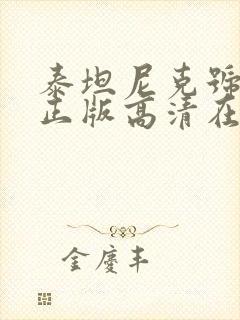 泰坦尼克號
正版高清在
金慶丰